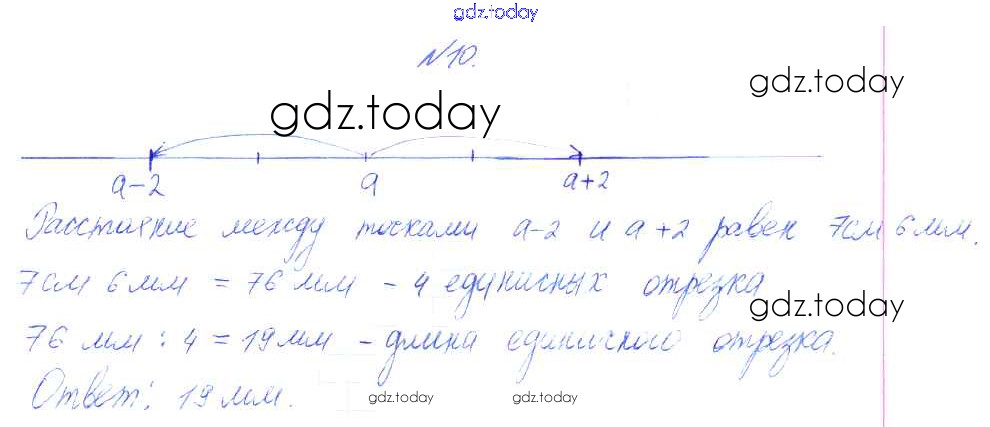 gdz.today
№10.
gdz.today
gdz.today
a-2 a a+2
Расстояние между точками a-2 и a+2 равен 7см 6мм.
7см 6мм = 76 мм - 4 единисных отрезка
gdz.today
76 мм : 4 = 19мм - длина единичского отрезка.
Ответ: 19мм.
gdz.today gdz.today